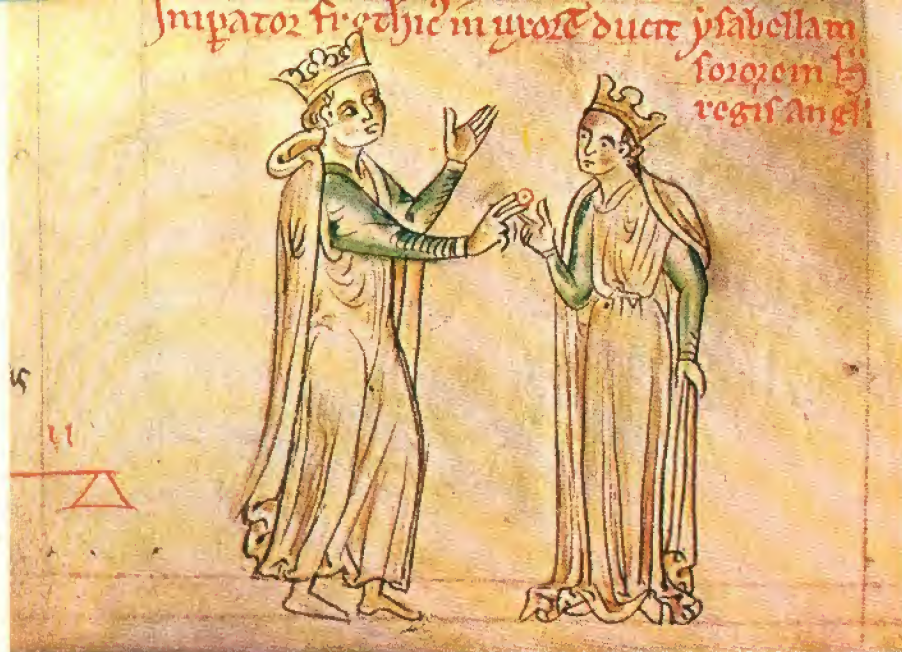 Imꝑator frethic᷒ in uxorē ducit ẏsabellam
sororem h̄
regis angl'.